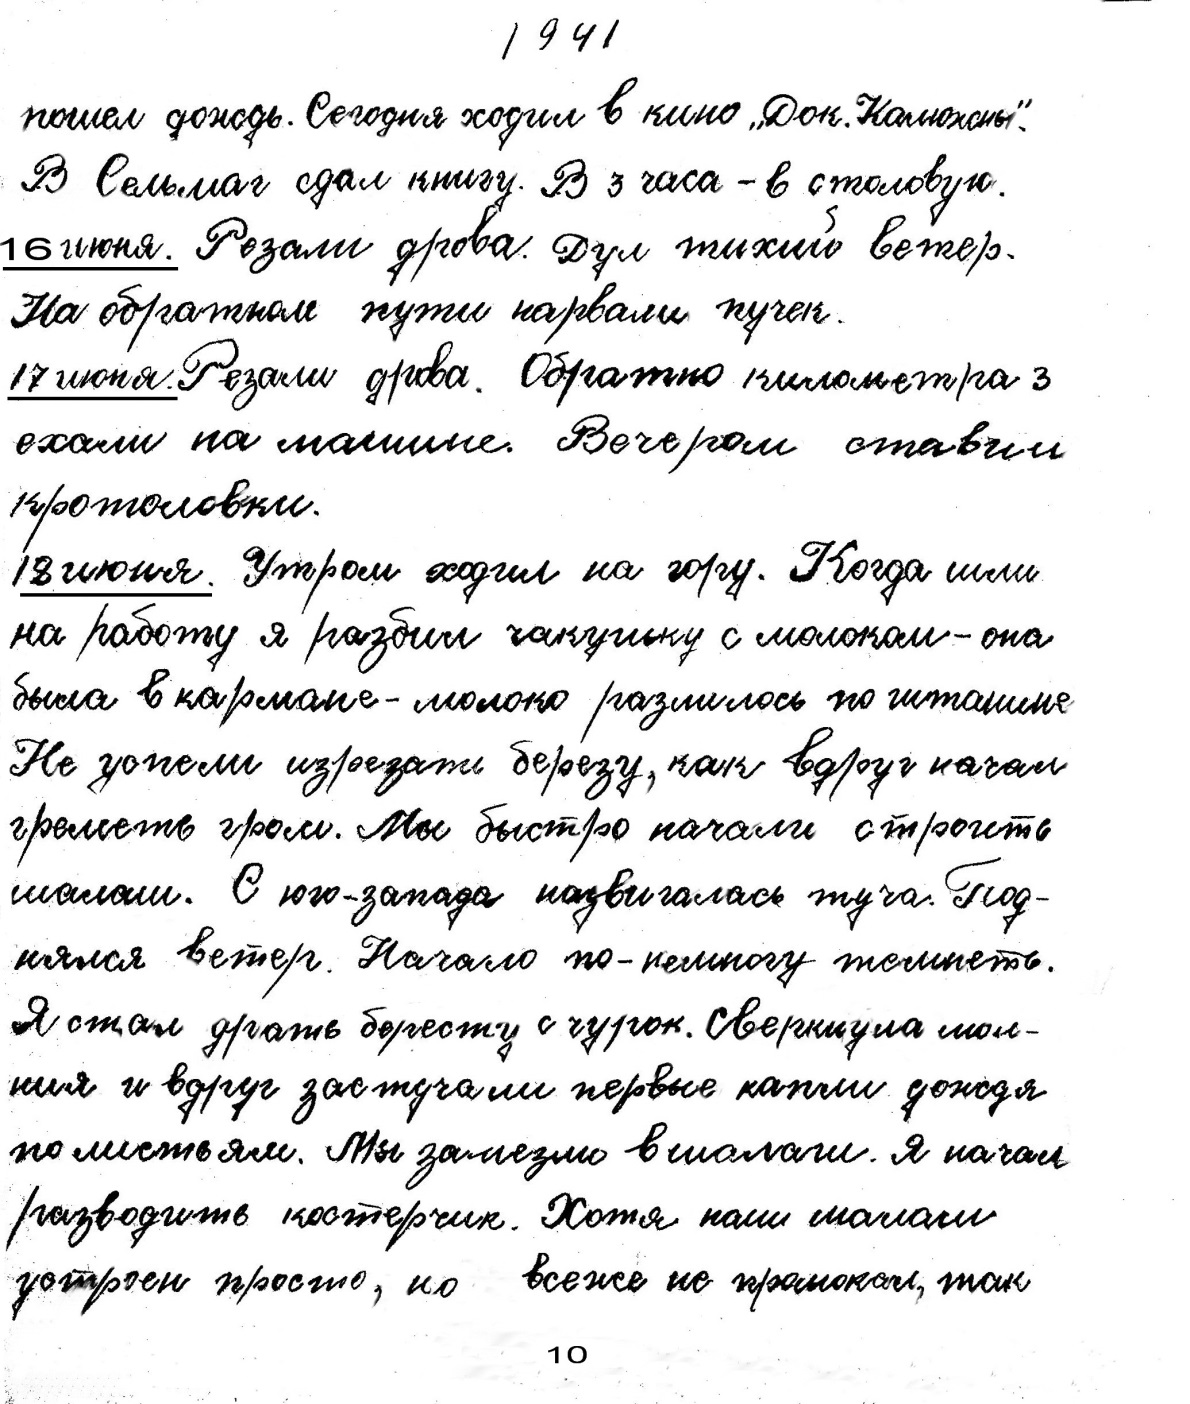 1941
пошел дождь. Сегодня ходил в кино „Док. Калюжны".
В Сельмаг сдал книгу. В 3 часа – в столовую.
16 июня. Резали дрова. Дул тихий ветер.
На обратном пути нарвали пучек.
17 июня. Резали дрова. Обратно километра 3
ехали на машине. Вечером ставили
кротоловки.
18 июня. Утром ходил на гору. Когда шли
на работу я разбил чакушку с молоком – она
была в кармане – молоко разлилось по штанине
Не успели изрезать березу, как вдруг начал
греметь гром. Мы быстро начали строить
шалаш. С юго-запада надвигалась туча. Под-
нялся ветер. Начало по-немногу темнеть.
Я стал драть бересту с чурок. Сверкнула мол-
ния и вдруг застучали первые капли дождя
по листьям. Мы залезли в шалаш. Я начал
разводить костерчик. Хотя наш шалаш
устроен просто, но всеже не промокал, так
10